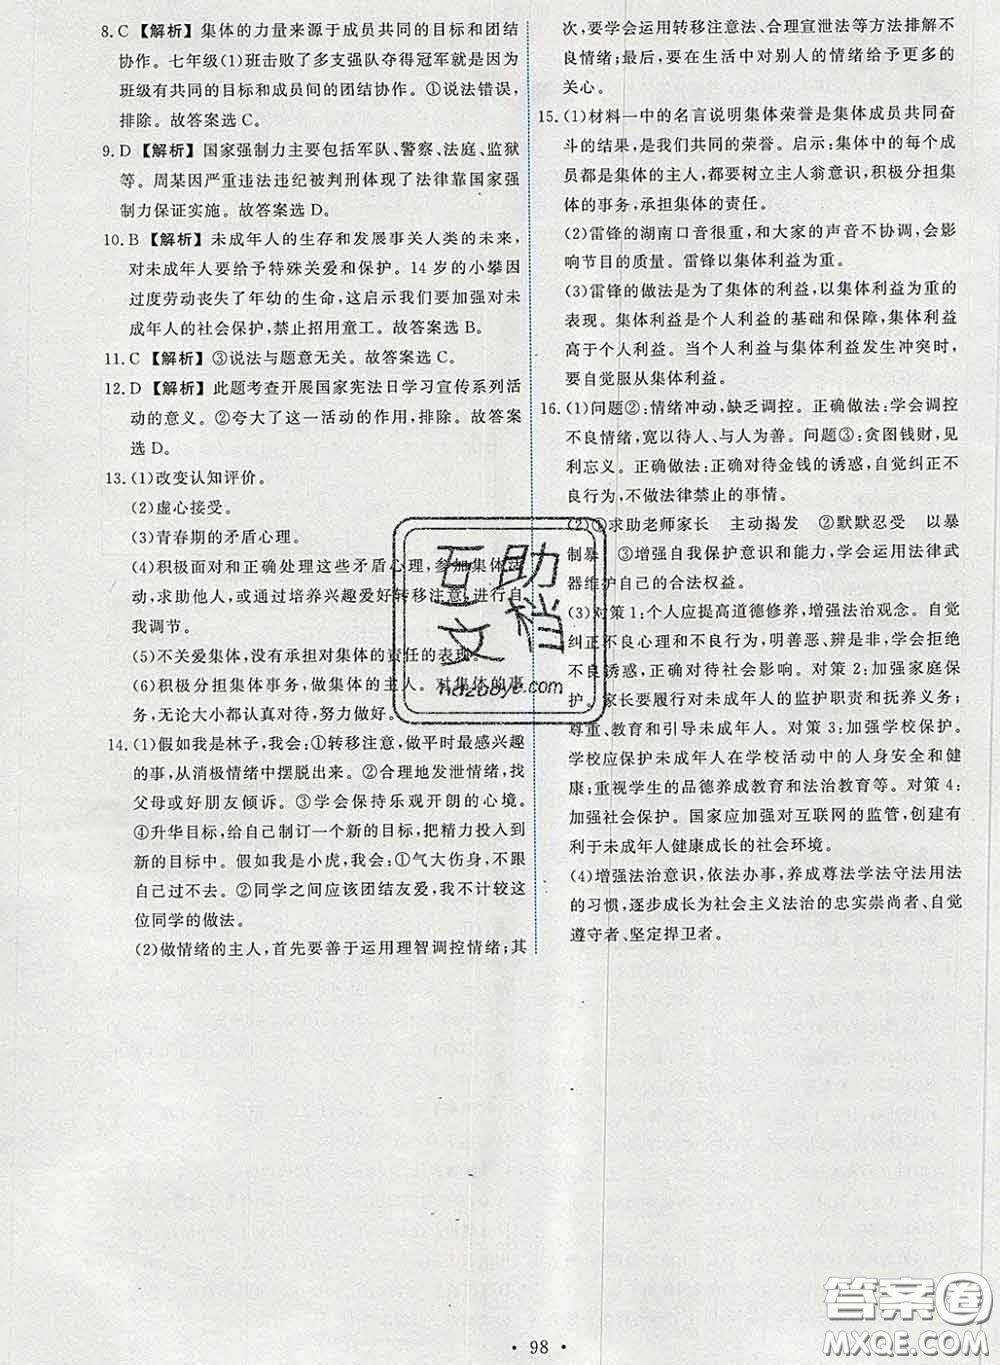 8. C 【解析】集体的力量来源于成员共同的目标和团结
协作。七年级(1)班击败了多支强队夺得冠军就是因为
班级有共同的目标和成员间的团结协作。①说法错误,
排除。故答案选 C。
9. D 【解析】国家强制力主要包括军队、警察、法庭、监狱
等。周某因严重违法违纪被判刑体现了法律靠国家强
制力保证实施。故答案选 D。
10. B 【解析】未成年人的生存和发展事关人类的未来,
对未成年人要给予特殊关爱和保护。14 岁的小攀因
过度劳动丧失了年幼的生命,这启示我们要加强对未
成年人的社会保护,禁止招用童工。故答案选 B。
11. C 【解析】③说法与题意无关。故答案选 C。
12. D 【解析】此题考查开展国家宪法日学习宣传系列活
动的意义。②夸大了这一活动的作用,排除。故答案
选 D。
13. (1)改变认知评价。
(2)虚心接受。
(3)青春期的矛盾心理。
(4)积极面对和正确处理这些矛盾心理,参加集体活
动,求助他人,或通过培养兴趣爱好转移注意,进行自
我调节。
(5)不关爱集体,没有承担对集体的责任的表现。
(6)积极分担集体事务,做集体的主人。对集体的事
务,无论大小都认真对待,努力做好。
14. (1)假如我是林子,我会:①转移注意,做平时最感兴趣
的事,从消极情绪中摆脱出来。②合理地发泄情绪,找
父母或好朋友倾诉。③学会保持乐观开朗的心境。
④升华目标,给自己制订一个新的目标,把精力投入到
新的目标中。假如我是小虎,我会:①气大伤身,不跟
自己过不去。②同学之间应该团结友爱,我不计较这
位同学的做法。
(2)做情绪的主人,首先要善于运用理智调控情绪;其
次,要学会运用转移注意法、合理宣泄法等方法排解不
良情绪;最后,要在生活中对别人的情绪给予更多的
关心。
15. (1)材料一中的名言说明集体荣誉是集体成员共同奋
斗的结果,是我们共同的荣誉。启示:集体中的每个成
员都是集体的主人,都要树立主人翁意识,积极分担集
体的事务,承担集体的责任。
(2)雷锋的湖南口音很重,和大家的声音不协调,会影
响节目的质量。雷锋以集体利益为重。
(3)雷锋的做法是为了集体的利益,以集体利益为重的
表现。集体利益是个人利益的基础和保障,集体利益
高于个人利益。当个人利益与集体利益发生冲突时,
要自觉服从集体利益。
16. (1)问题②:情绪冲动,缺乏调控。正确做法:学会调控
不良情绪,宽以待人、与人为善。问题③:贪图钱财,见
利忘义。正确做法:正确对待金钱的诱惑,自觉纠正不
良行为,不做法律禁止的事情。
(2)①求助老师家长 主动揭发 ②默默忍受 以暴
制暴 ③增强自我保护意识和能力,学会运用法律武
器维护自己的合法权益。
(3)对策 1:个人应提高道德修养,增强法治观念。自觉
纠正不良心理和不良行为,明善恶、辨是非,学会拒绝
不良诱惑,正确对待社会影响。对策 2:加强家庭保
护。家长要履行对未成年人的监护职责和抚养义务;
尊重、教育和引导未成年人。对策 3:加强学校保护。
学校应保护未成年人在学校活动中的人身安全和健
康;重视学生的品德养成教育和法治教育等。对策 4:
加强社会保护。国家应加强对互联网的监管,创建有
利于未成年人健康成长的社会环境。
(4)增强法治意识,依法办事,养成尊法学法守法用法
的习惯,逐步成长为社会主义法治的忠实崇尚者、自觉
遵守者、坚定捍卫者。
互助
文档
hdzboye.com
98
答案圈
MXQE.COM